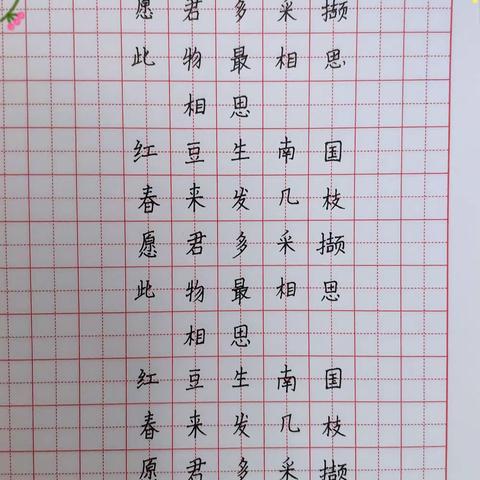 愿君多采撷
此物最相思
相思
红豆生南国
春来发几枝
愿君多采撷
此物最相思
相思
红豆生南国
春来发几枝
愿君多采撷